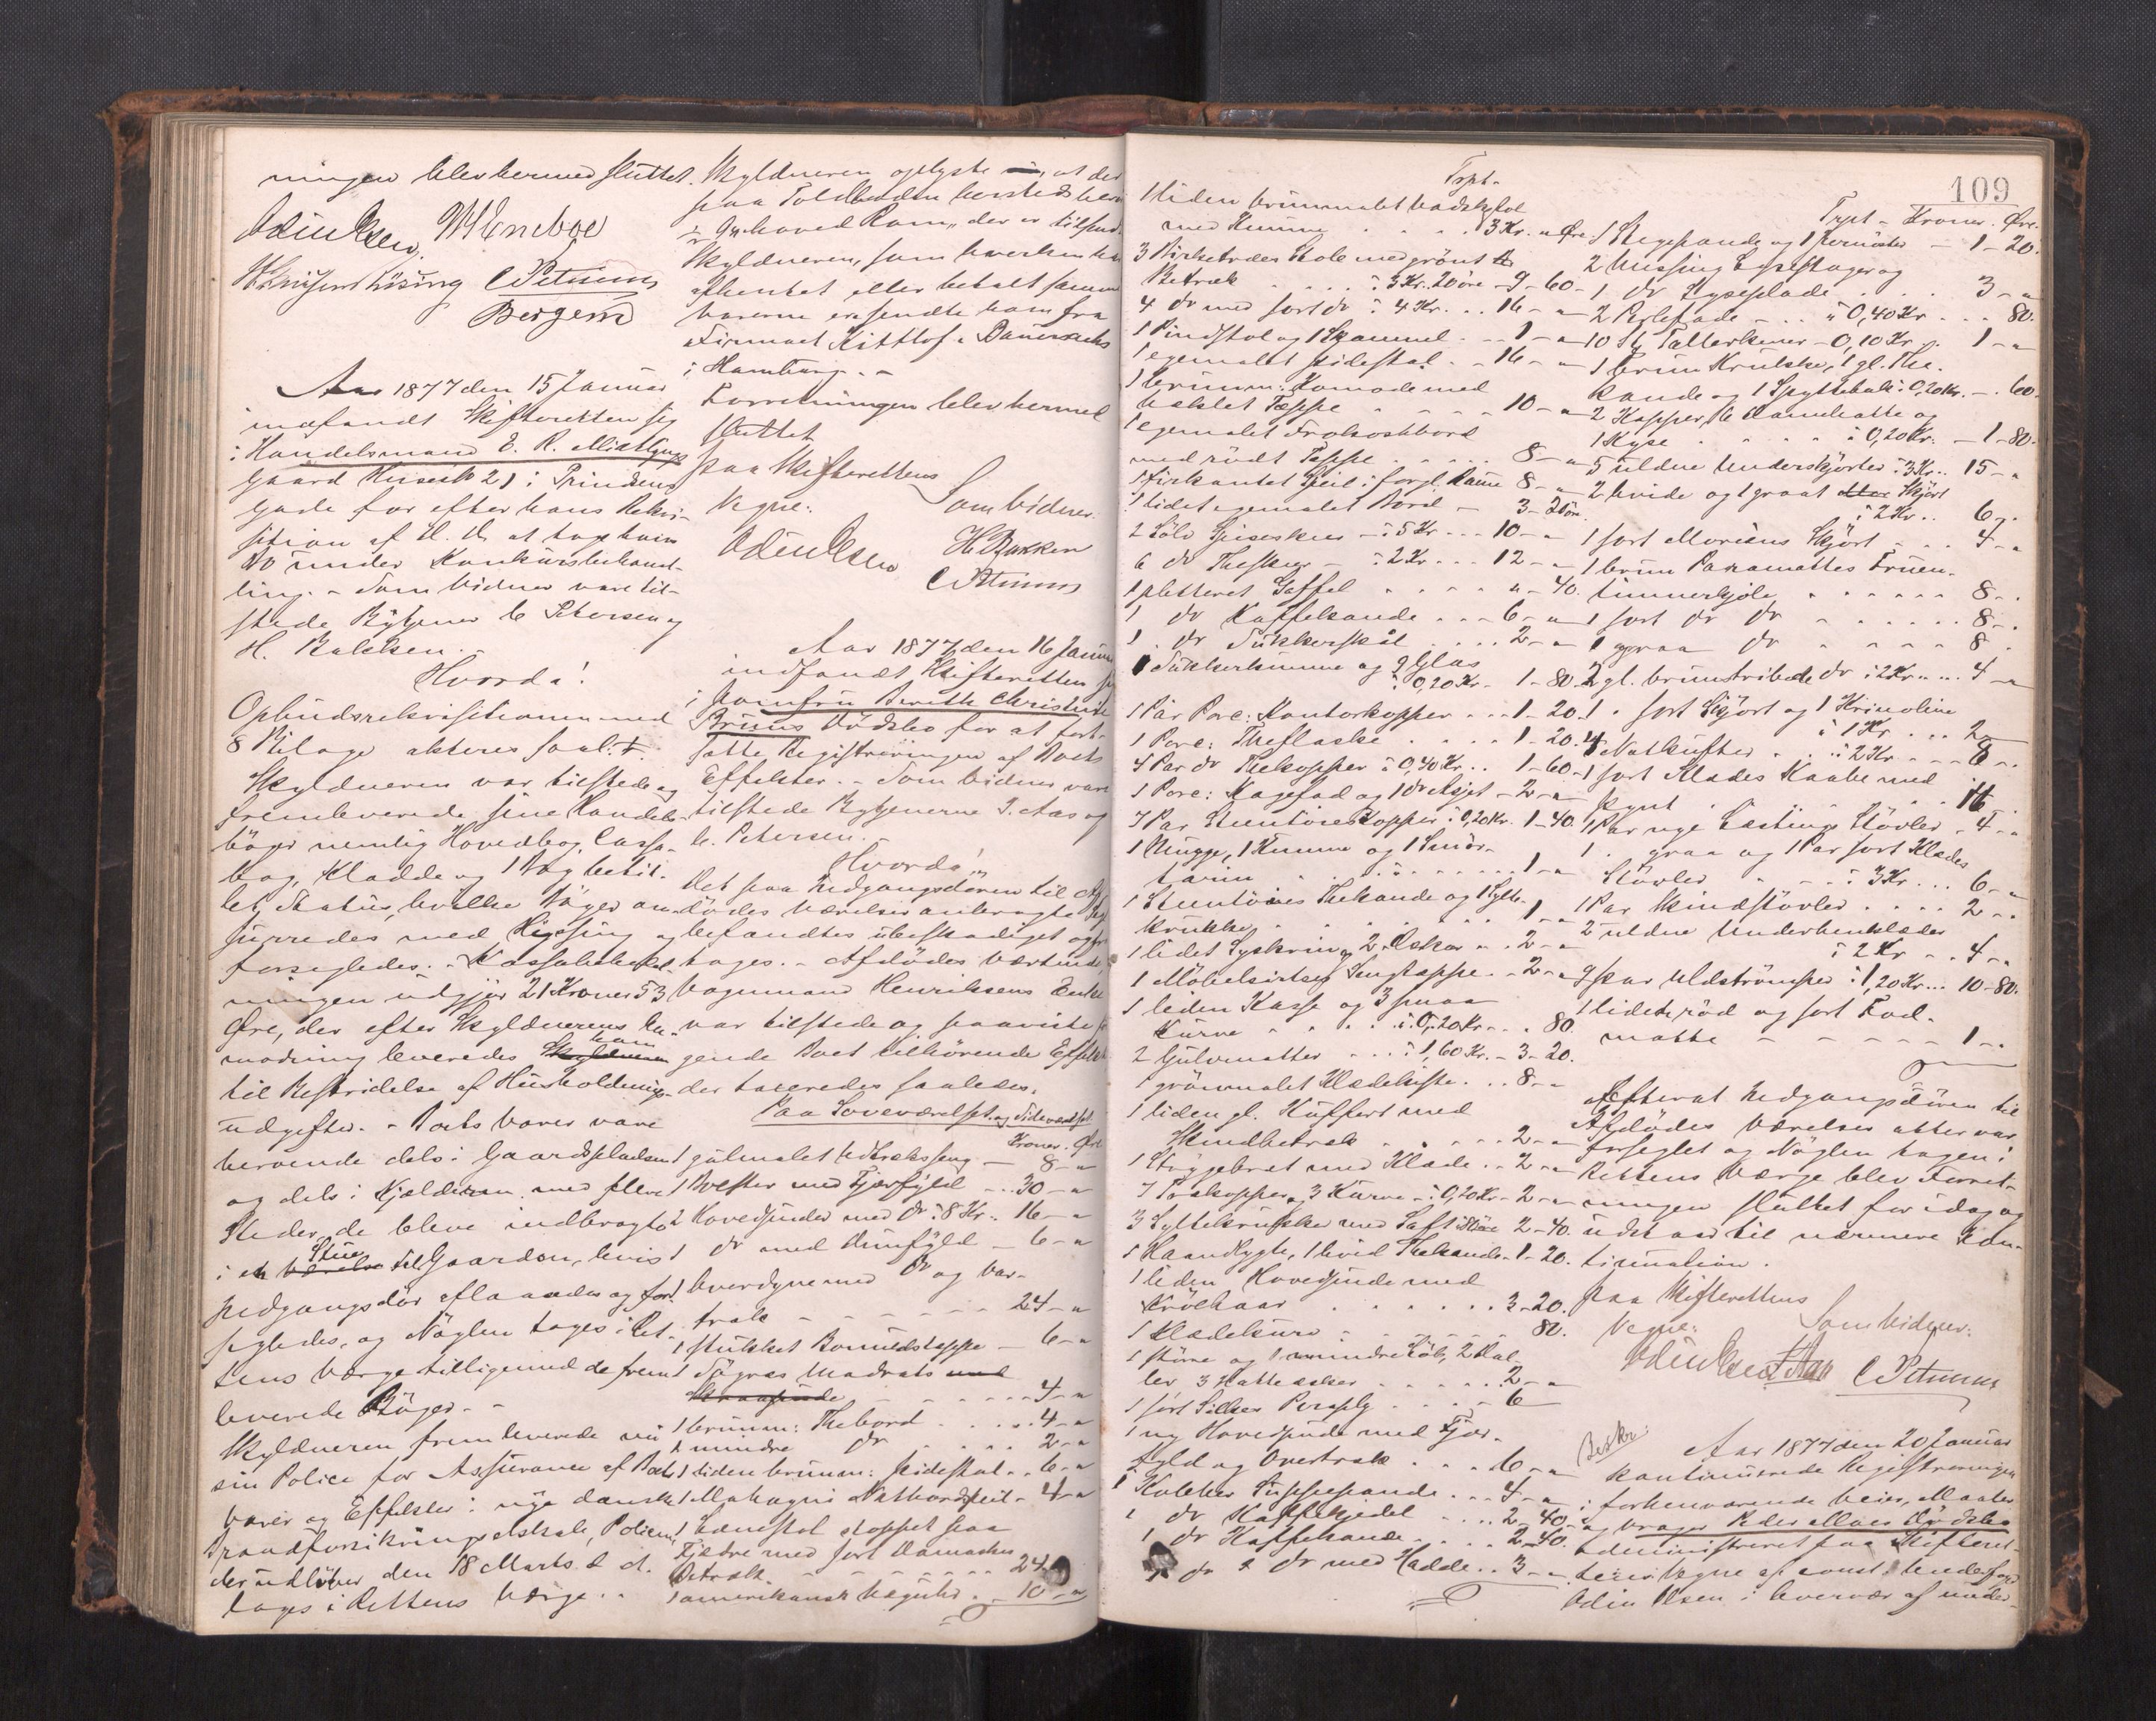 ningen blev hermed sluttet.
Odin Olsen
C Petersen
Aar 1877 den 15 Januar
indfandt Skifteretten sig
i Handelsmand E. R.
Gaard Huset No 21 i Prindsens
gade for efter hans Rekvi-
sition af d. D. at tage hans
Bo under Konkursbehand-
ling. - Som Vidner vare til-
stede Bytjener C Petersen og
H. Bakken. -
Hvorda!
Opbudsrekvisitionen med
8 Bilage akteres saal: †.
Skyldneren var tilstede og
fremleverede sine Handels-
bøger nemlig Hovedbog, Cassa-
bog, Kladde og 1 Bog betit-
let Status, hvilke Bøger
med Hyssing og
forsegledes. - Kassabehold-
ningen udgjør 21 Kroner 53
Øre, der efter Skyldnerens An-
modning leveredes ham
til Bestridelse af Husholdnings-
udgifter. - Boets Varer vare
beroende dels i Gaardspladsen
og dels i Kjelderen med flere
Steder, de bleve indbragte
i en Stue til Gaarden, hvis
Indgangsdør aflaasedes og for-
segledes, og Nøglen toges i Ret-
tens Værge tilligemed de frem-
leverede Bøger. -
Skyldneren fremleverede nu
sin Police for Assurance af Boets
Varer og Effekter i nye danske
Brandforsikringsselskab, Policen
der udløber den 18 Marts d. A.
toges i Rettens Værge. -
Skyldneren oplyste at der
paa Toldboden
Skyldneren, som hverken har
afhentet eller betalt samme
Varerne ere sendte ham fra
Firmaet
i Hamburg. -
Forretningen blev hermed
sluttet
Paa Skifterettens
Vegne:
Som Vidner.
Odin Olsen
H Bakken
C Petersen
Aar 1877 den 16 Januar
indfandt Skifteretten sig
i Jomfru Berith Christine
Bruns Dødsbo for at fort-
sætte Registreringen af Boets
Effekter. - Som Vidner vare
tilstede Bytjenerne I. Aas og
C. Petersen. -
Hvorda!
Det paa Indgangsdøren til Af-
dødes Værelser anbragte Segl
befandtes ubeskadiget og
toges. - Afdødes Værtinde,
Vognmand Henriksens Enke
var tilstede og paaviste føl-
gende Boet tilhørende Effekter
der taxeredes saaledes.
Paa Soveværelset og Sideværelset
Kroner. Øre
1 gulmalet Udtræksseng - 8 - "
1 Bolster med Fjærfyld - 30 - "
2 Hovedpuder med Do à 8 Kr. 16 - "
1 do med Dunfyld - 6 - "
1 Overdyne med Do og Var-
træk - 24 - "
1 stukket Bomuldstæppe - 6 - "
1 Søgræs Madrats med
4 - "
1 brunm: Thebord 4 - "
1 mindre do 2 - "
1 liden brunm: Pidestal 6 - "
1 Mahogni Natbordspeil - 4 - "
1 Lænestol stoppet paa
Fjædre med sort Damaskes
Betræk 24
1 amerikansk Vægur 10 - "
109
Trpt.
1 liden brunmalet Vadskstol
med Kumme 3 Kr. " Øre
3 Birketræes Stole med grønt
Betræk à 3 Kr. 20 øre - 9 - 60
4 do med sort do à 4 Kr. 16 - "
1 Pindstol og 1 Skammel 1 - "
1 egemalet Pidestal 16 - "
1 brunm: Komode med
hæklet Tæppe 10 - "
1 egemalet Frokostbord
med rødt Tæppe 8 - "
1 firkantet Speil i forgl. Ramme 8 - "
1 lidet egemalet Bord - 3 - 20 øre
2 Sølv Spiseskeer à 5 Kr 10 - "
6 do Theskeer à 2 Kr 12 - "
1 pletteret Gaffel " - 40.
1 do Kaffekande 6 - "
1 do Sukkerskål 2 - "
1 Sukkerkumme og 9 Glas
à 0,20 Kr - 1 - 80
1 Par Porc: Kontorkopper 1 - 20
1 Porc: Theflaske 1 - 20
4 Par do Thekopper à 0,40 Kr. 1 - 60
1 Porc: Kagefad og 1 do Asjet - 2 - "
7 Par Stentøies Kopper à 0,20 Kr. 1 - 40
1 Mugge, 1 Kumme og 1 Smør-
tarin 1 - "
1 Stentøies Thekande og 1 Sylte-
krukke 1 - "
1 lidet Syskrin og 2 Æsker 2 - "
1 Møbelsirtses Sengtæppe 2 - "
1 liden Kasse og 3 smaa
Kurve à 0,20 Kr 80.
2 Gulvmatter à 1,60 Kr. - 3 - 20.
1 grønmalet Klædekiste 8 - "
1 liden gl. Kuffert med
Skindbetræk 2 - "
1 Strygebret med Klæde 2 - "
7 Par kopper og 3 Kurve à 0,20 Kr - 2 - "
3 Syltekrukker med Saft 2 - 40.
1 Haandlygte, 1 hvid Thekande - 1 - 20.
1 liden Hovedpude med
Krølhaar 3 - 20.
1 Klædekurv 80.
1 større og 1 mindre
ler 3 Hatteæsker 2 - "
1 sort Silkes Paraply 6
1 ny Hovedpude med Fjær-
fyld og Overtræk 6 - "
1 Kobber Suppepande 4 - "
1 do Kaffekjedel 2 - 40
1 do Kaffekande 2 - 40
do med Hadde 3 - "
Trpt - Kroner. Øre.
1 Stegepande og 1 - 1 - 20.
2 Messing Lysestager og
1 do Lyseplade 3 - "
2 Perlefade à 0,40 Kr 80.
10 St Tallerkener - 0,10 Kr 1 - "
1 brun Krukke, 1 gl. The-
kande og 1 Spyttebak à 0,20 Kr. 60
2 Kapper, 6 Damehatte og
1 Kyse à 0,20 Kr. - 1 - 80.
5 uldne Underskjorter à 3 Kr. 15 - "
2 hvide og 1 graat Skjørt
à 2 Kr 6 -
1 sort Moriens Skjørt 4 - "
1 brun Paramattes Fruen-
timmerkjole 8 - .
1 sort do do 8 - .
1 graa do 8
2 gl. brunstribede do à 2 Kr 4 - "
1 sort Skjørt og 1 Krinoline
à 1 Kr 2
4 Natkufter à 2 Kr 8
1 sort Klædes Kaabe med
Pynt 16
1 Par nye Lastings Støvler 4 - "
1 graa og 1 Par sort Klædes
Støvler à 3 Kr 6 - "
1 Par Skindstøvler 2
2 uldne Underbenklæder
à 2 Kr 4 - "
9 Par Uldstrømper à 1,20 Kr 10 - 80.
1 lidet rød og sort Fod-
matte 1 -
Efterat Indgangsdøren til
Afdødes Værelser atter var
forseglet og Nøglen tagen i
Rettens Værge blev Forret-
ningen sluttet for idag og
udsat til nærmere Kon-
tinuation.
Paa Skifterettens
Vegne:
Som Vidner:
Odin Olsen
I Aas
C Petersen
Beskr:
Aar 1877 den 20 Januar
kontinuerede Registreringen
i forhenværende Veier, Maaler
og Vrager Peder Dødsbo
administreret paa Skifteret-
tens Vegne af const:
Odin Olsen i Overvær af under-